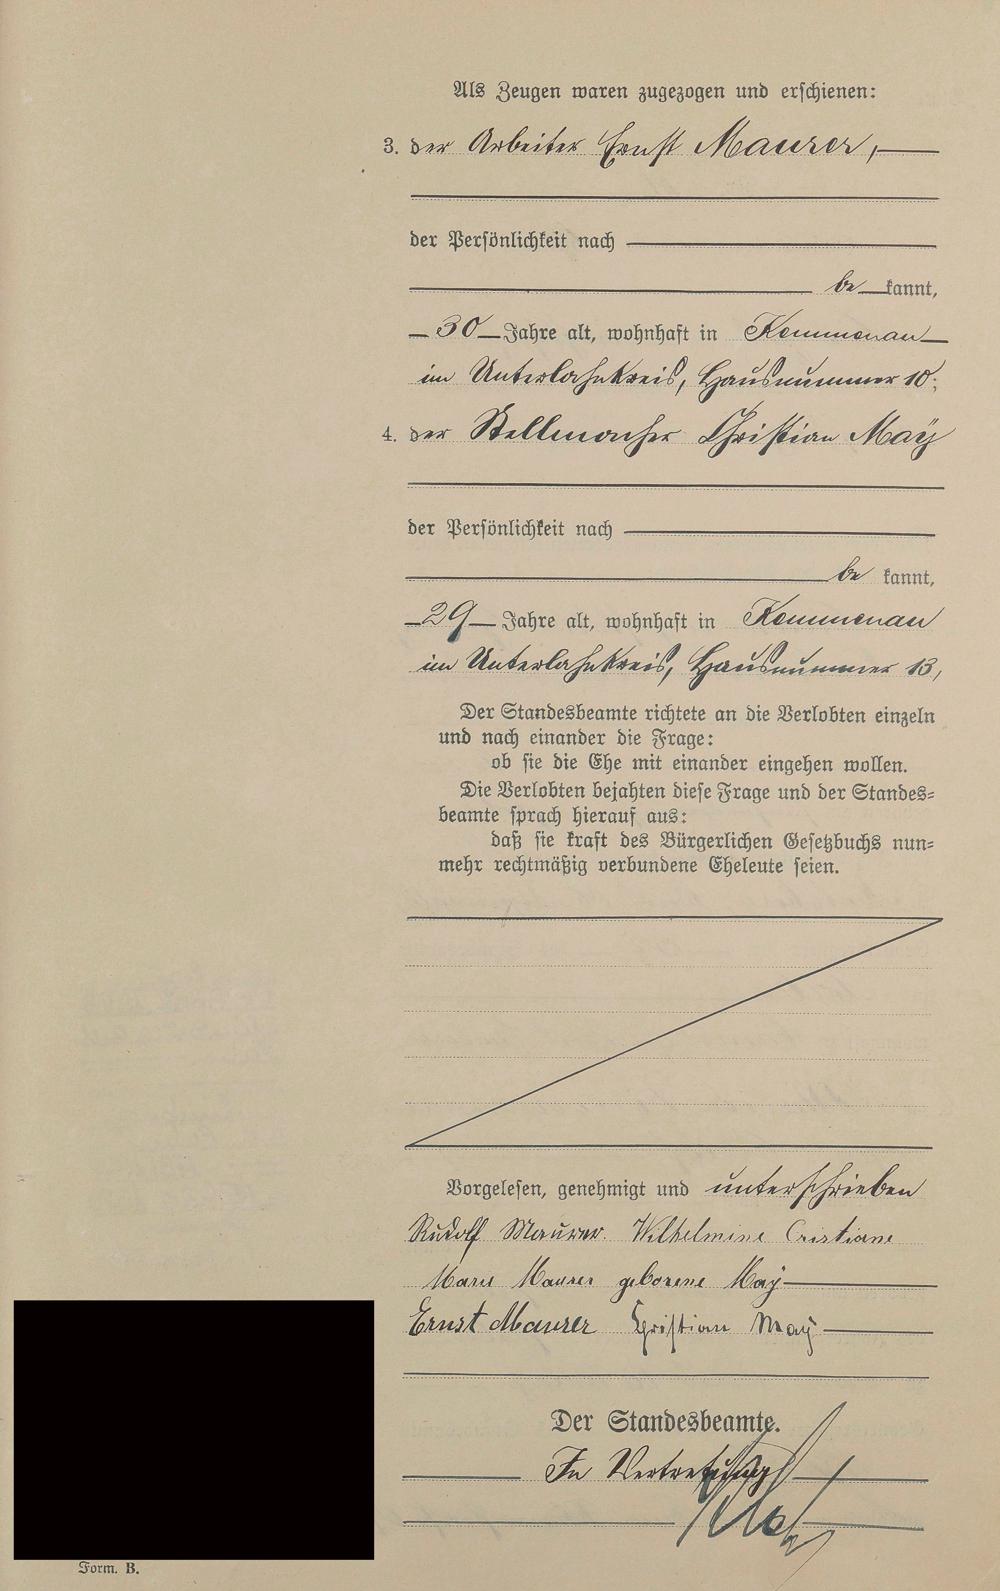 Als Zeugen waren zugezogen und erschienen:
3. der Arbeiter Ernst Maurer,
der Persönlichkeit nach
be kannt,
30 Jahre alt, wohnhaft in Kemmenau
im Unterlahnkreis, Hausnummer 10;
4. der Stellmacher Christian Maÿ
der Persönlichkeit nach
be kannt,
29 Jahre alt, wohnhaft in Kemmenau
im Unterlahnkreis, Hausnummer 13,
Der Standesbeamte richtete an die Verlobten einzeln
und nach einander die Frage:
ob sie die Ehe mit einander eingehen wollen.
Die Verlobten bejahten diese Frage und der Standes=
beamte sprach hierauf aus:
daß sie kraft des Bürgerlichen Gesetzbuchs nun=
mehr rechtmäßig verbundene Eheleute seien.
Vorgelesen, genehmigt und unterschrieben
Rudolf Maurer. Wilhelmine Cristiane
Marie Maurer geborene May
Ernst Maurer Christian Maÿ
Der Standesbeamte.
In Vertretung
Form. B.